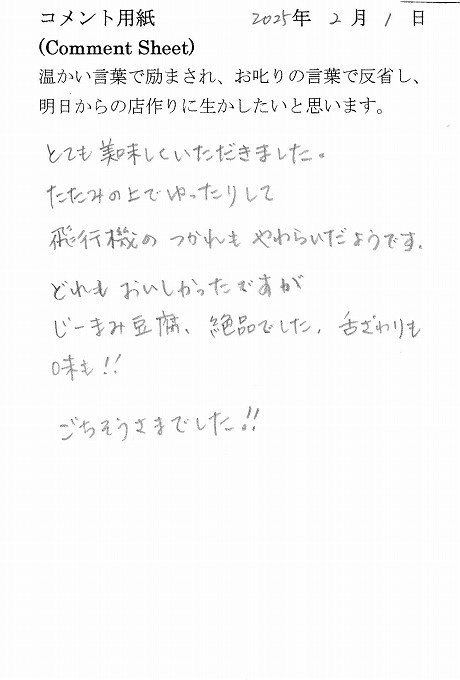 コメント用紙 2025年 2月 1日
(Comment Sheet)
温かい言葉で励まされ、お叱りの言葉で反省し、
明日からの店作りに生かしたいと思います。
とても美味しくいただきました。
たたみの上でゆったりして
飛行機の つかれも やわらいだようです。
どれも おいしかったですが
じーまみ豆腐、絶品でした。舌ざわりも
味も!!
ごちそうさまでした!!